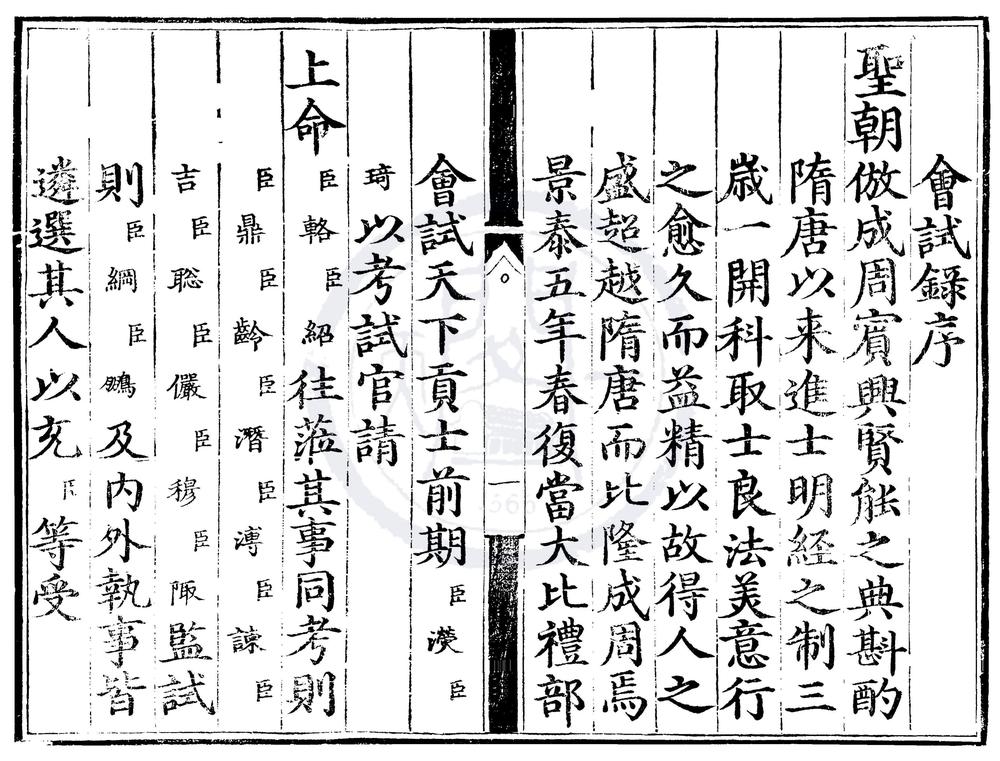 會試錄序
聖朝倣成周賓興賢能之典斟酌
隋唐以来進士明經之制三
歳一開科取士良法美意行
之愈久而益精以故得人之
盛超越隋唐而比隆成周焉
景泰五年春復當大比禮部
一
會試天下貢士前期臣濙臣
琦以考試官請
上命臣輅臣紹往蒞其事同考則
臣鼎臣齡臣潛臣溥臣諫臣
吉臣聡臣儼臣穆臣陬監試
則臣綱臣鵬及内外執事皆
遴選其人以充臣等受